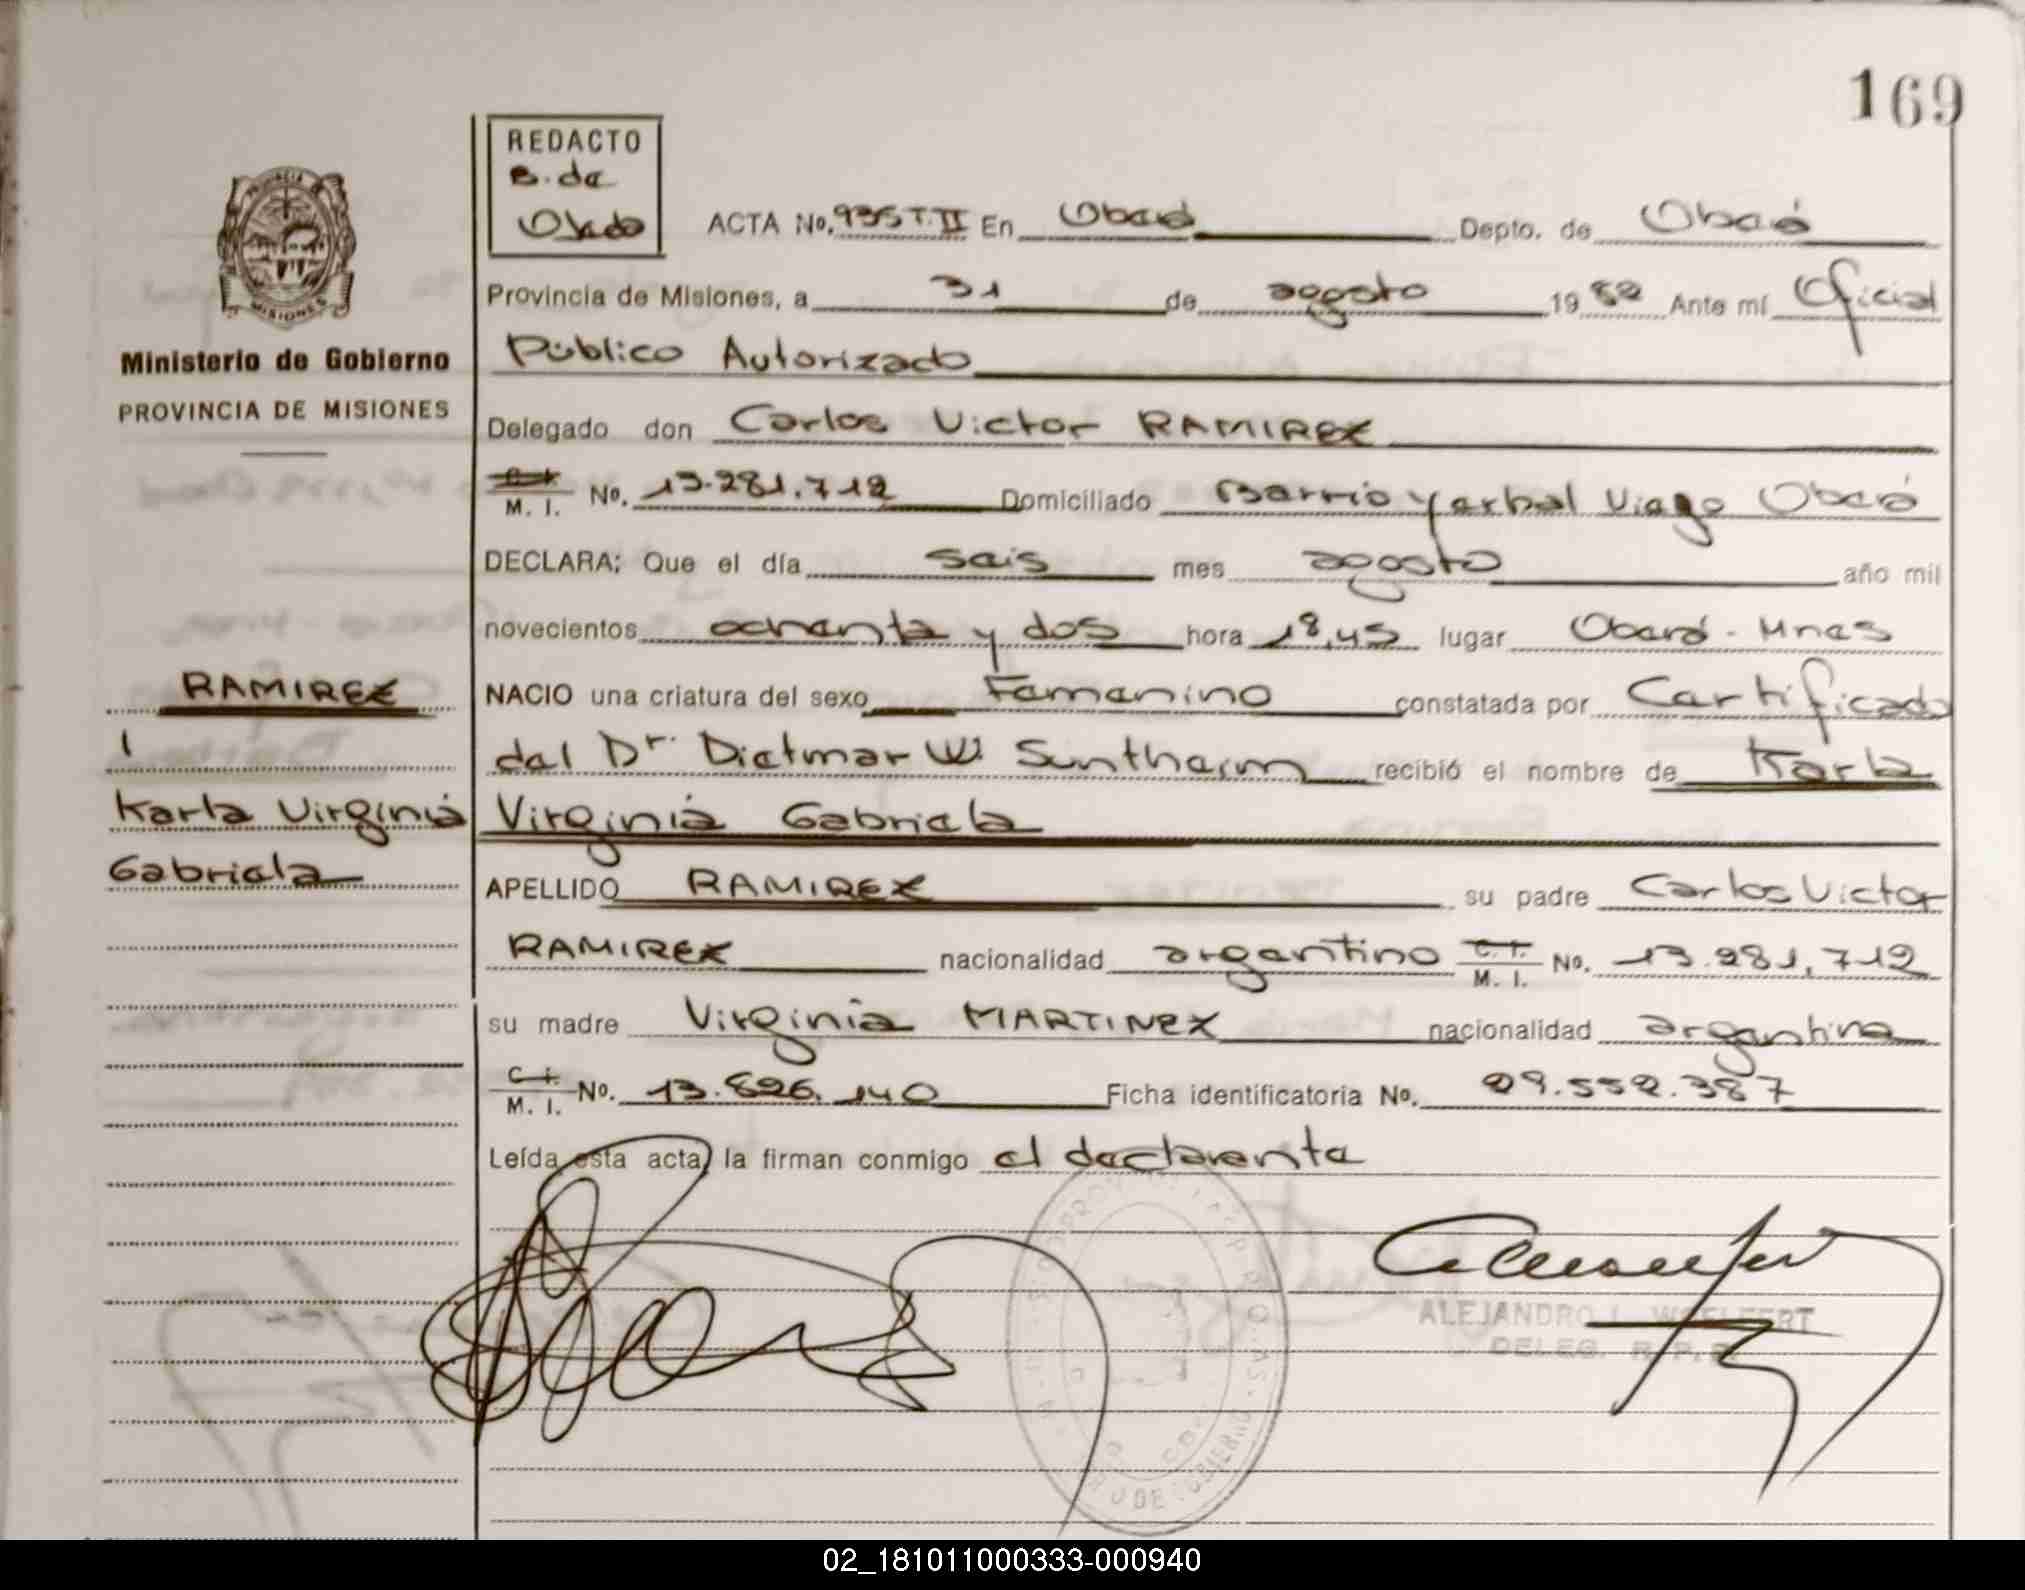 169
REDACTO
B. de
Olado
ACTA No. 935 T. II En Oberá Depto. de Oberá
PROVINCIA
MISIONES
Provincia de Misiones, a 31 de agosto 1982 Ante mí Oficial
Ministerio de Gobierno
Público Autorizado
PROVINCIA DE MISIONES
Delegado don Carlos Victor RAMIREZ
C. I. M. I. No. 13.281.712 Domiciliado Barrio Yerbal Viejo Oberá
DECLARA: Que el día seis mes agosto año mil
novecientos ochenta y dos hora 18,45 lugar Oberá - Mnes
RAMIREZ
NACIO una criatura del sexo Femenino constatada por Certificado
del Dr. Dietmar W. Sontheim recibió el nombre de Karla
Karla Virginia
Virginia Gabriela
Gabriela
APELLIDO RAMIREZ su padre Carlos Victor
RAMIREZ nacionalidad argentino C. I. M. I. No. 13.281.712
su madre Virginia MARTINEZ nacionalidad argentina
C. I. M. I. No. 13.826.140 Ficha identificatoria No. 29.552.387
Leída esta acta, la firman conmigo el declarante
ALEJANDRO L. WOELFERT
DELEG. R. P.
02_181011000333-000940